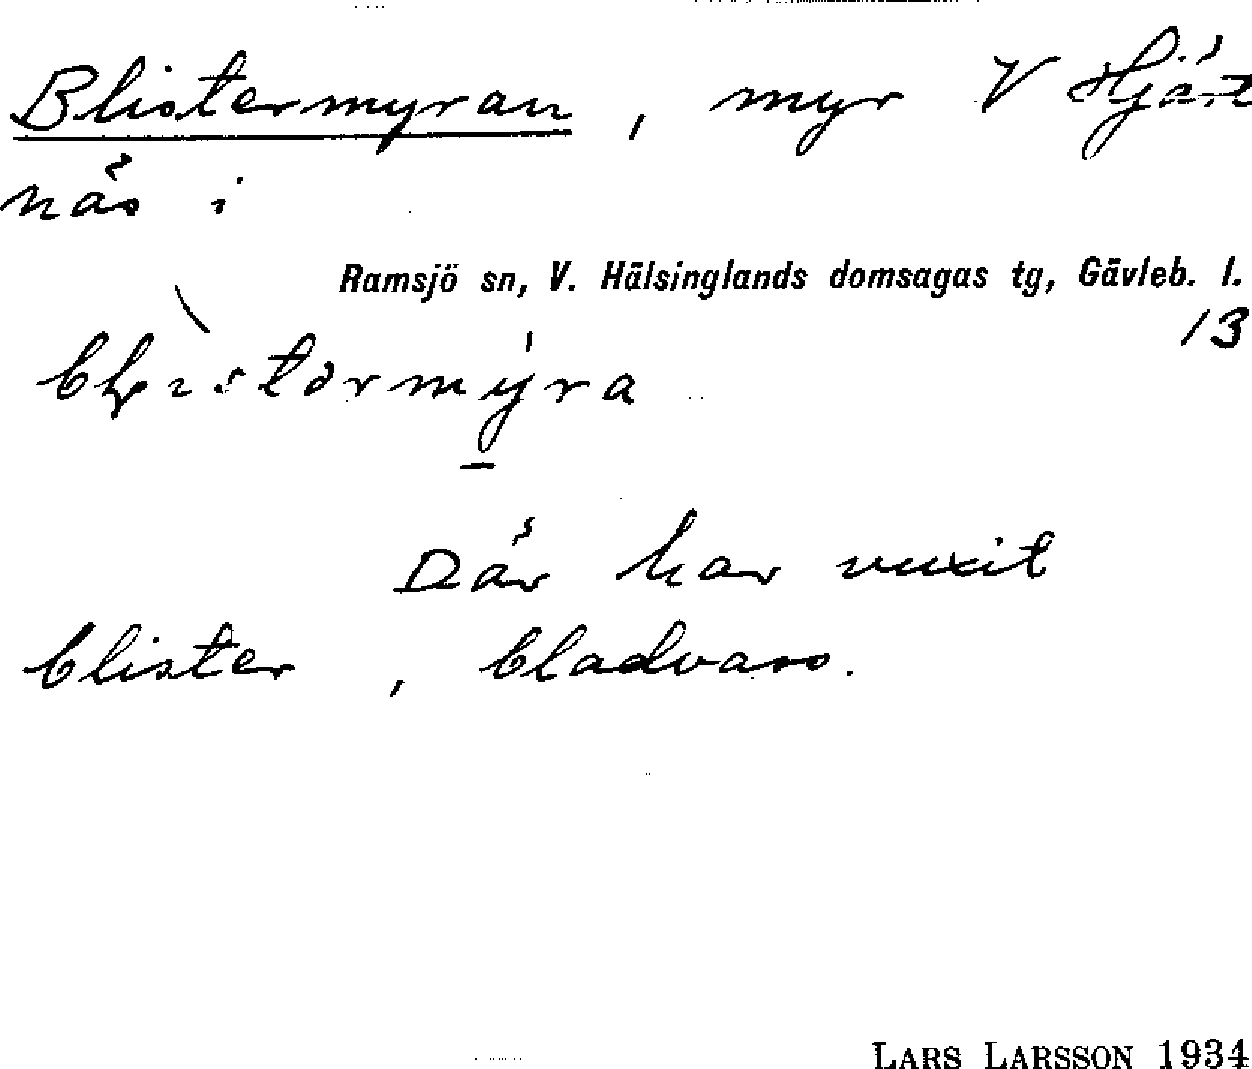 Blistermyran, myr V Hjärt
näs i
Ramsjö sn, V. Hälsinglands domsagas tg, Gävleb. l.
13
Där har vuxit
blister, bladvass.
LARS LARSSON 1934